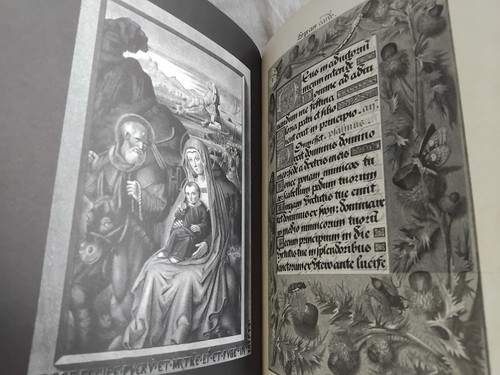 PVERV ET MATRE EI ET FVGE IN
Deus in adiutoriu
meum intende
Domine ad adiu
uandum me festina
Gloria patri et filio
Sicut erat in principio. an.
Dum esset. psalmus.
Dixit dominus domino
meo sede a dextris meis
Donec ponam inimicos tu
os scabellum pedum tuorum
Virgam virtutis tue emit
tet dominus ex sion: dominare
in medio inimicorum tuorū
Tecum principium in die
virtutis tue in splendoribus
sanctorum ex utero ante lucife